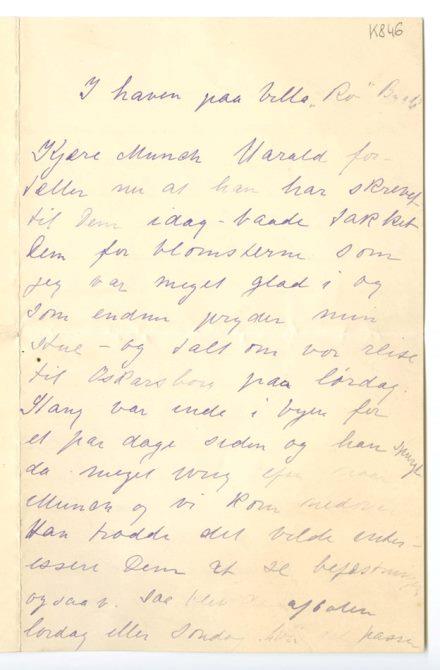 K846
I haven paa Villa „Ro"
Kjære Munch Harald for-
tæller nu at han har skrevet
til Dem idag - baade takket
Dem for blomsterne som
jeg var meget glad i og
som endnu pryder min
stue - og talt om vor reise
til Oskarsborg paa lørdag.
Stang var inde i byen for
et par dage siden og han spurgte
da meget ivrig efter naar
Munch og vi kom nedover
Han trodde det vilde inter-
essere Dem at se befæstningen
ogsaa. Saa blev aftalen
lørdag eller søndag passer